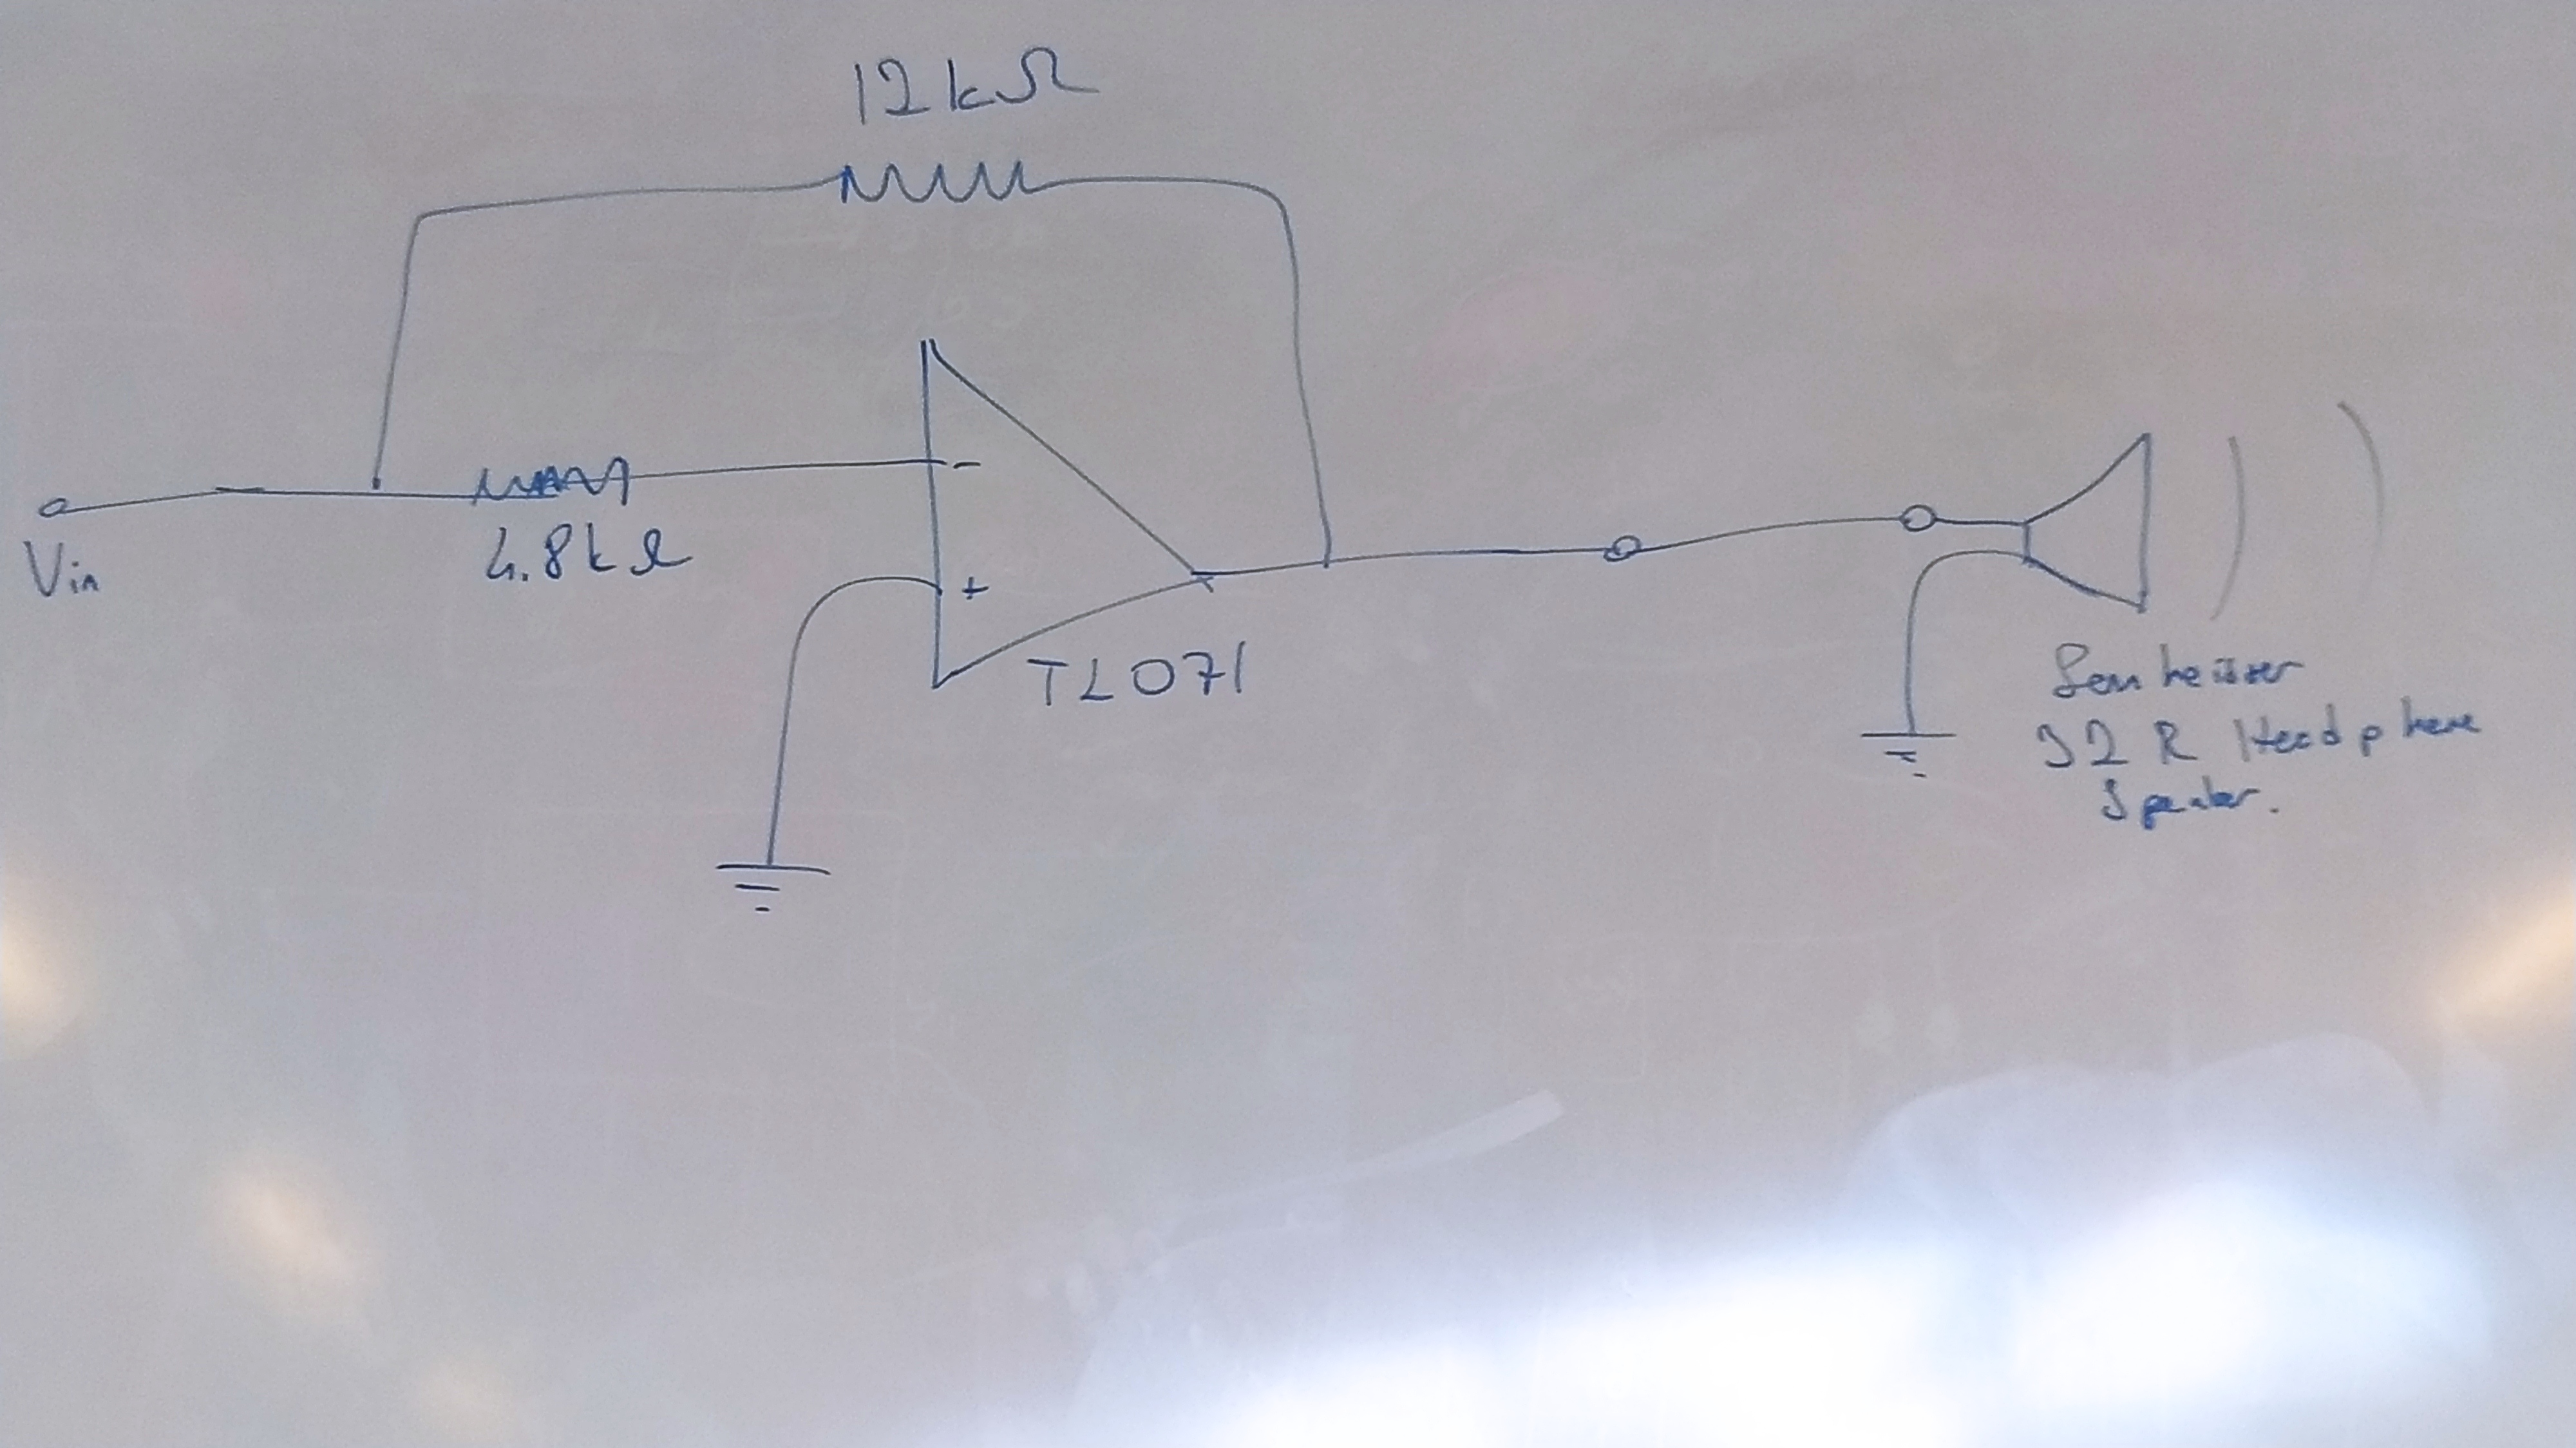 12kΩ
Vin
4.8kΩ
-
+
TL071
Senheiser
32 R Headphone
Speaker.